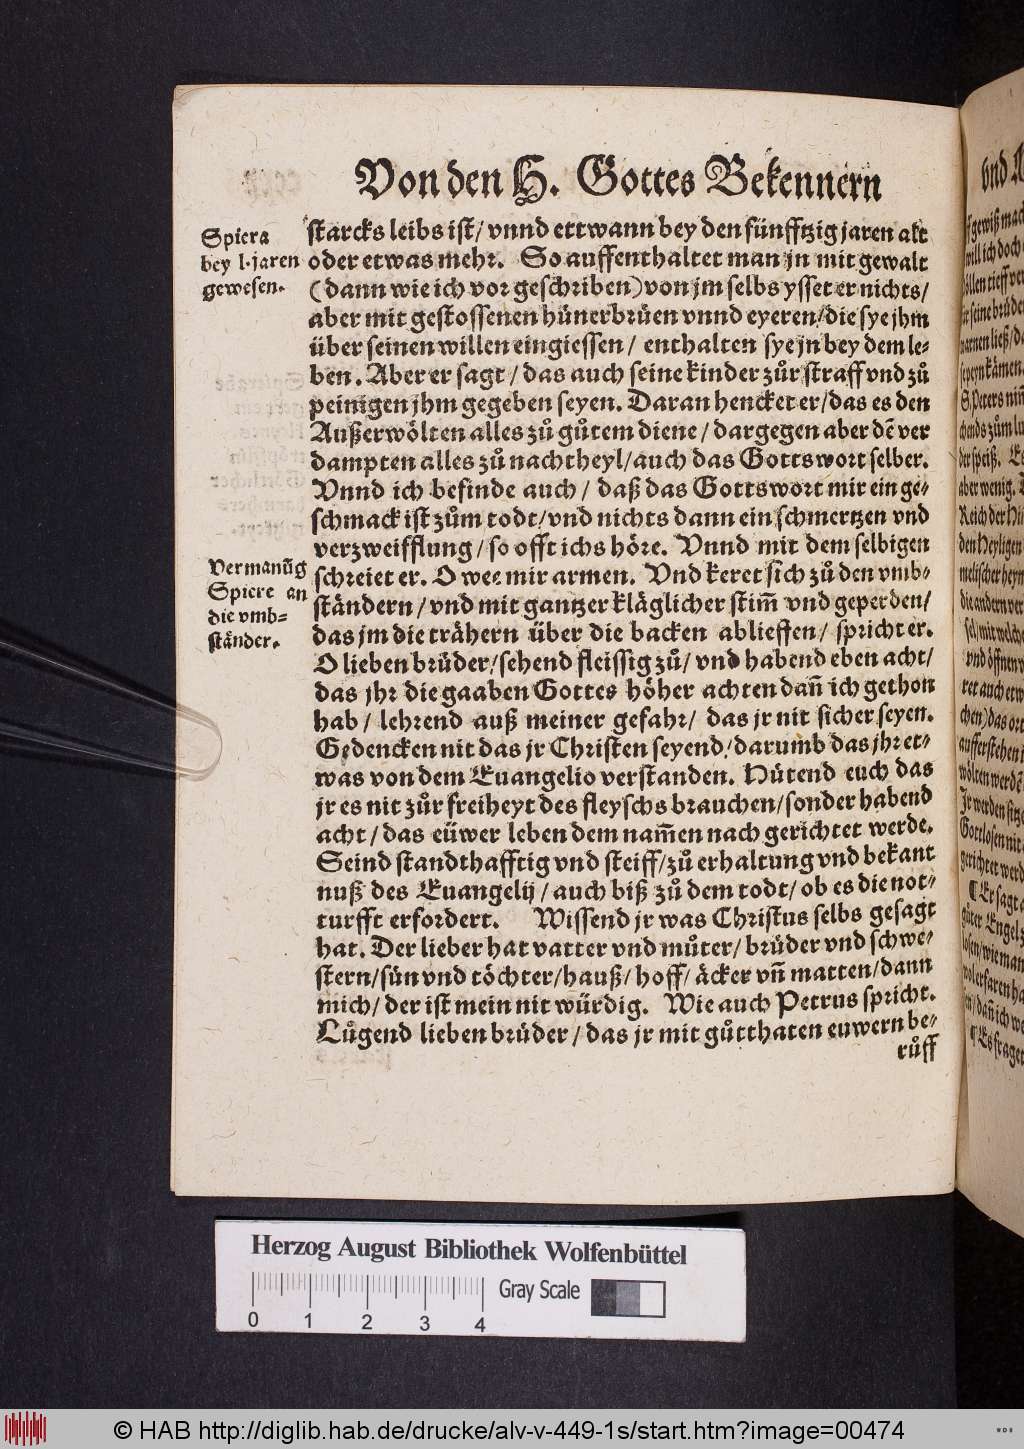 Von den H. Gottes Bekennern
Spiera
bey l. jaren
gewesen.
starcks leibs ist/ vnnd ettwann bey den fünfftzig jaren alt
oder etwas mehr. So auffenthaltet man jn mit gewalt
(dann wie ich vor geschriben) von jm selbs ysset er nichts/
aber mit gestossenen hünerbrüen vnnd eyeren/ die sye jhm
über seinen willen eingiessen/ enthalten sye jn bey dem le-
ben. Aber er sagt/ das auch seine kinder zůr straff vnd zů
peinigen jhm gegeben seyen. Daran hencket er/ das es den
Außerwölten alles zů gůtem diene/ dargegen aber dē ver
dampten alles zů nachtheyl/ auch das Gottswort selber.
Vnnd ich befinde auch/ daß das Gottswort mir ein ge-
schmack ist zům todt/ vnd nichts dann ein schmertzen vnd
verzweifflung/ so offt ichs höre. Vnnd mit dem selbigen
Vermanūg
Spiere an
die vmb-
ständer.
schreiet er. O wee mir armen. Vnd keret sich zů den vmb-
ständern/ vnd mit gantzer kläglicher stim̄ vnd geperden/
das jm die trähern über die backen ablieffen/ spricht er.
O lieben brüder/ sehend fleissig zů/ vnd habend eben acht/
das jhr die gaaben Gottes höher achten dan̄ ich gethon
hab/ lehrend auß meiner gefahr/ das jr nit sicher seyen.
Gedencken nit das jr Christen seyend/ darumb das jhr et-
was von dem Euangelio verstanden. Hütend euch das
jr es nit zůr freiheyt des fleyschs brauchen/ sonder habend
acht/ das eüwer leben dem nam̄en nach gerichtet werde.
Seind standthafftig vnd steiff/ zů erhaltung vnd bekant
nuß des Euangelij/ auch biß zů dem todt/ ob es die not-
turfft erfordert. Wissend jr was Christus selbs gesagt
hat. Der lieber hat vatter vnd můter/ brüder vnd schwe-
stern/ sün vnd töchter/ hauß/ hoff/ äcker vn̄ matten/ dann
mich/ der ist mein nit würdig. Wie auch Petrus spricht.
Lůgend lieben brüder/ das jr mit gůtthaten euwern be-
růff
Herzog August Bibliothek Wolfenbüttel
Gray Scale
0 1 2 3 4
© HAB http://diglib.hab.de/drucke/alv-v-449-1s/start.htm?image=00474